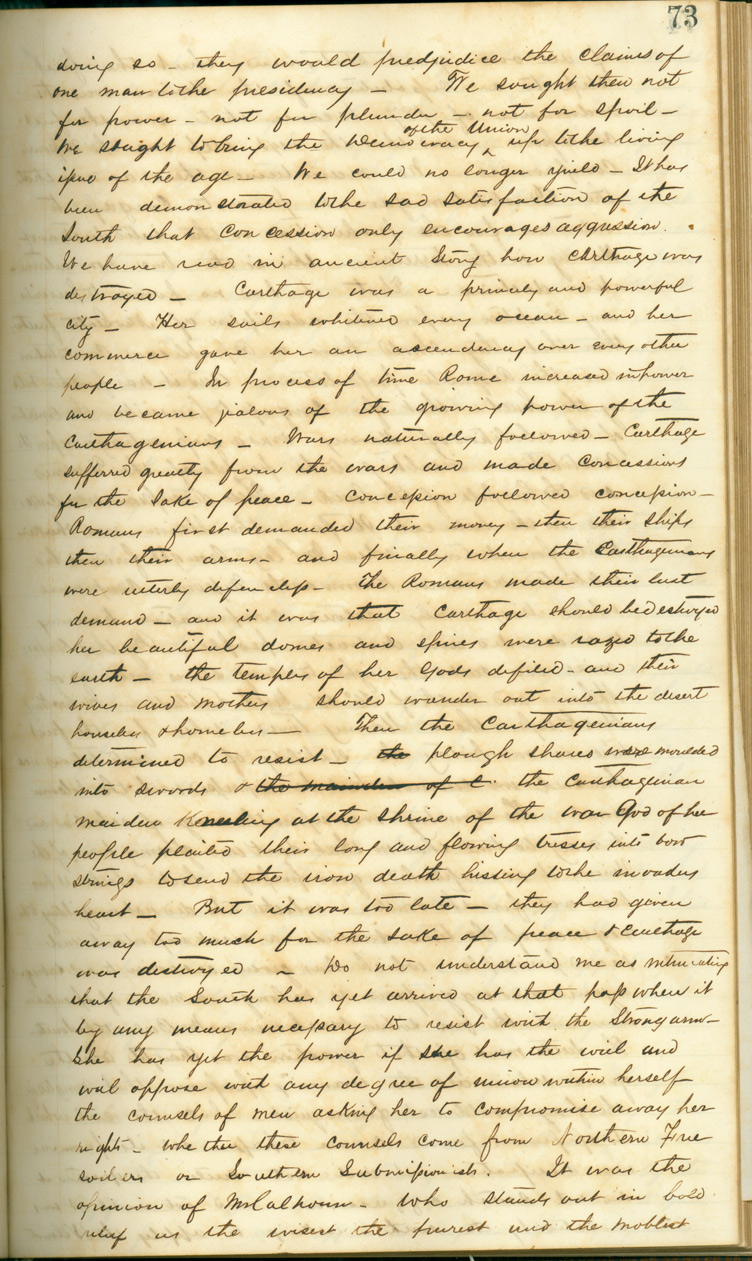 73
doing so - they would predjudice the claims of
one man to the presidency - We sought then not
for power - not for plunder - not for spoil -
of the Union
We sought to bring the Democracy ^ up to the living
issue of the age - We could no longer yield - It has
been demonstrated to the sad satisfaction of the
South that Concession only encourages aggression.
We have read in ancient Story how Carthage was
destroyed - Carthage was a princely and powerful
city - Her sails whitened every ocean - and her
commerce gave her an ascendency over every other
people - In process of time Rome increased in power
and became jealous of the growing power of the
Carthagenians - Wars naturally followed - Carthage
sufferred greatly from the wars and made Concessions
for the Sake of peace - Concession followed concession -
Romans first demanded their money - then their ships
then their arms - and finally when the Carthagenians
were utterly defenceless - The Romans made their last
demand - and it was that Carthage should be destroyed
her beautiful domes and spires were razed to the
earth - the temples of her Gods defiled - and their
wives and mothers should wander out into the desert
houseless & homeless - Then the Carthagenians
determined to resist - the plough shares were moulded
into swords & the maidens of C. the Carthagenian
maiden Kneeling at the shrine of the war God of her
people plaited their long and flowing tresses into bow
strings to send the iron death hissing to the invaders
heart - But it was too late - they had given
away too much for the sake of peace & Carthage
was destroyed - Do not understand me as intimating
that the South has yet arrived at that pass when it
by any means necessary to resist with the Strong arm -
She has yet the power if she has the will and
will oppose with any degree of union within herself
the counsels of men asking her to compromise away her
rights - whether these counsels come from Northern Free
soilers or Southern Submissionists. It was the
opinion of Mr Calhoun - who stands out in bold
relief as the wisest the purest and the noblest